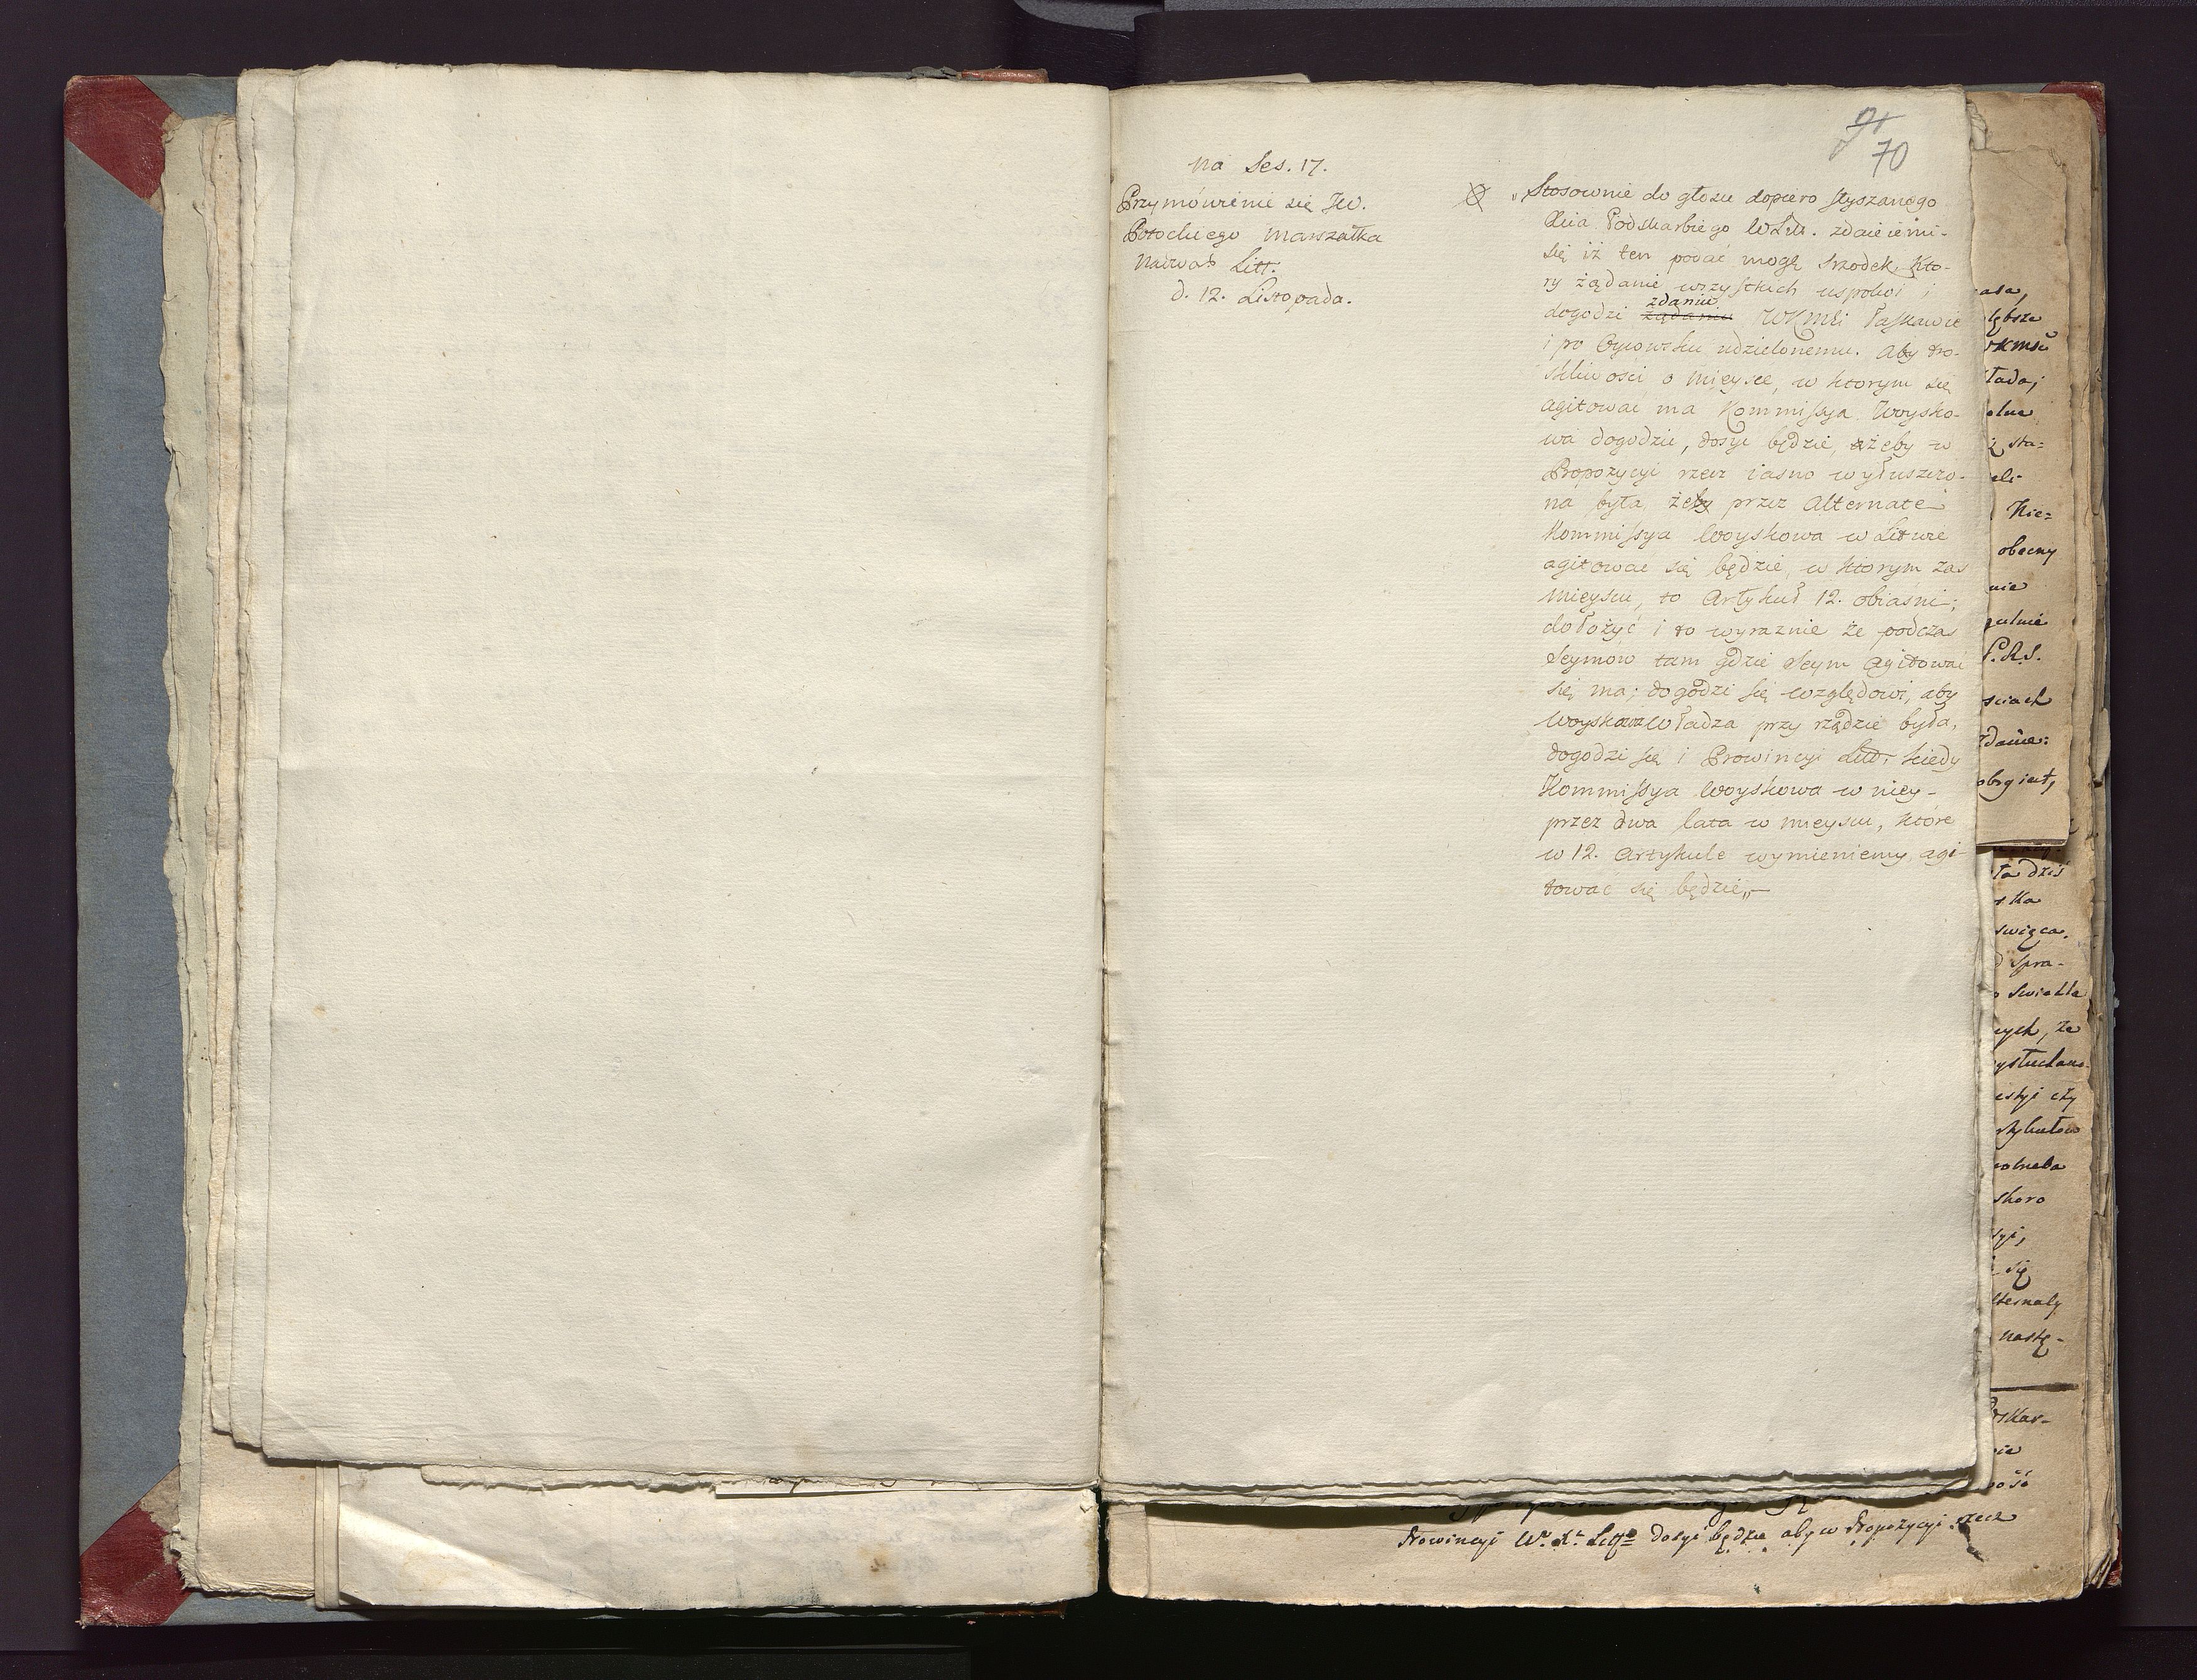 91
70
na Ses. 17.
Przymówienie się JW.
Potockiego Marszałka
Nadwor Litt.
d. 12. Listopada.
„Stosownie do głosu dopiero słyszanego
Xcia Podskarbiego WLitt. zdaie iemi-
się iż ten podać mogę srzodek, Kto-
ry żądanie wszystkich uspokoi i
zdaniu
dogodzi żądaniu WKMci łaskawie
i po Oycowsku udzielonemu. Aby tro-
skliwosci o mieysce, w ktorym się
agitować ma Kommissya Woysko-
wa dogodzić, dosyc będzie, ażeby w
Propozycyi rzecz iasno wyłuszczo-
na była, żeby przez Alternatę
Kommissya Woyskowa w Litwie
agitowac się będzie, w ktorym zas
mieyscu, to Artykuł 12. obiasni;
dołożyć i to wyraznie że podczas
Seymow tam gdzie Seym agitować
się ma; dogodzi się względowi, aby
Woyskowa Władza przy rządzie była,
dogodzi się i Prowincyi Litt. kiedy
Kommissya Woyskowa w niey-
przez dwa lata w mieyscu, które
w 12. Artykule wymieniemy, agi-
tować się będzie„-
obecny
nie
P.R.S.
sciach
dziś
swięca.
Spra-
Swiatła
nych, że
skoro
się
nastę-
Prowincyi W. X. Litt dosyć będzie aby w Propozycyi rzecz